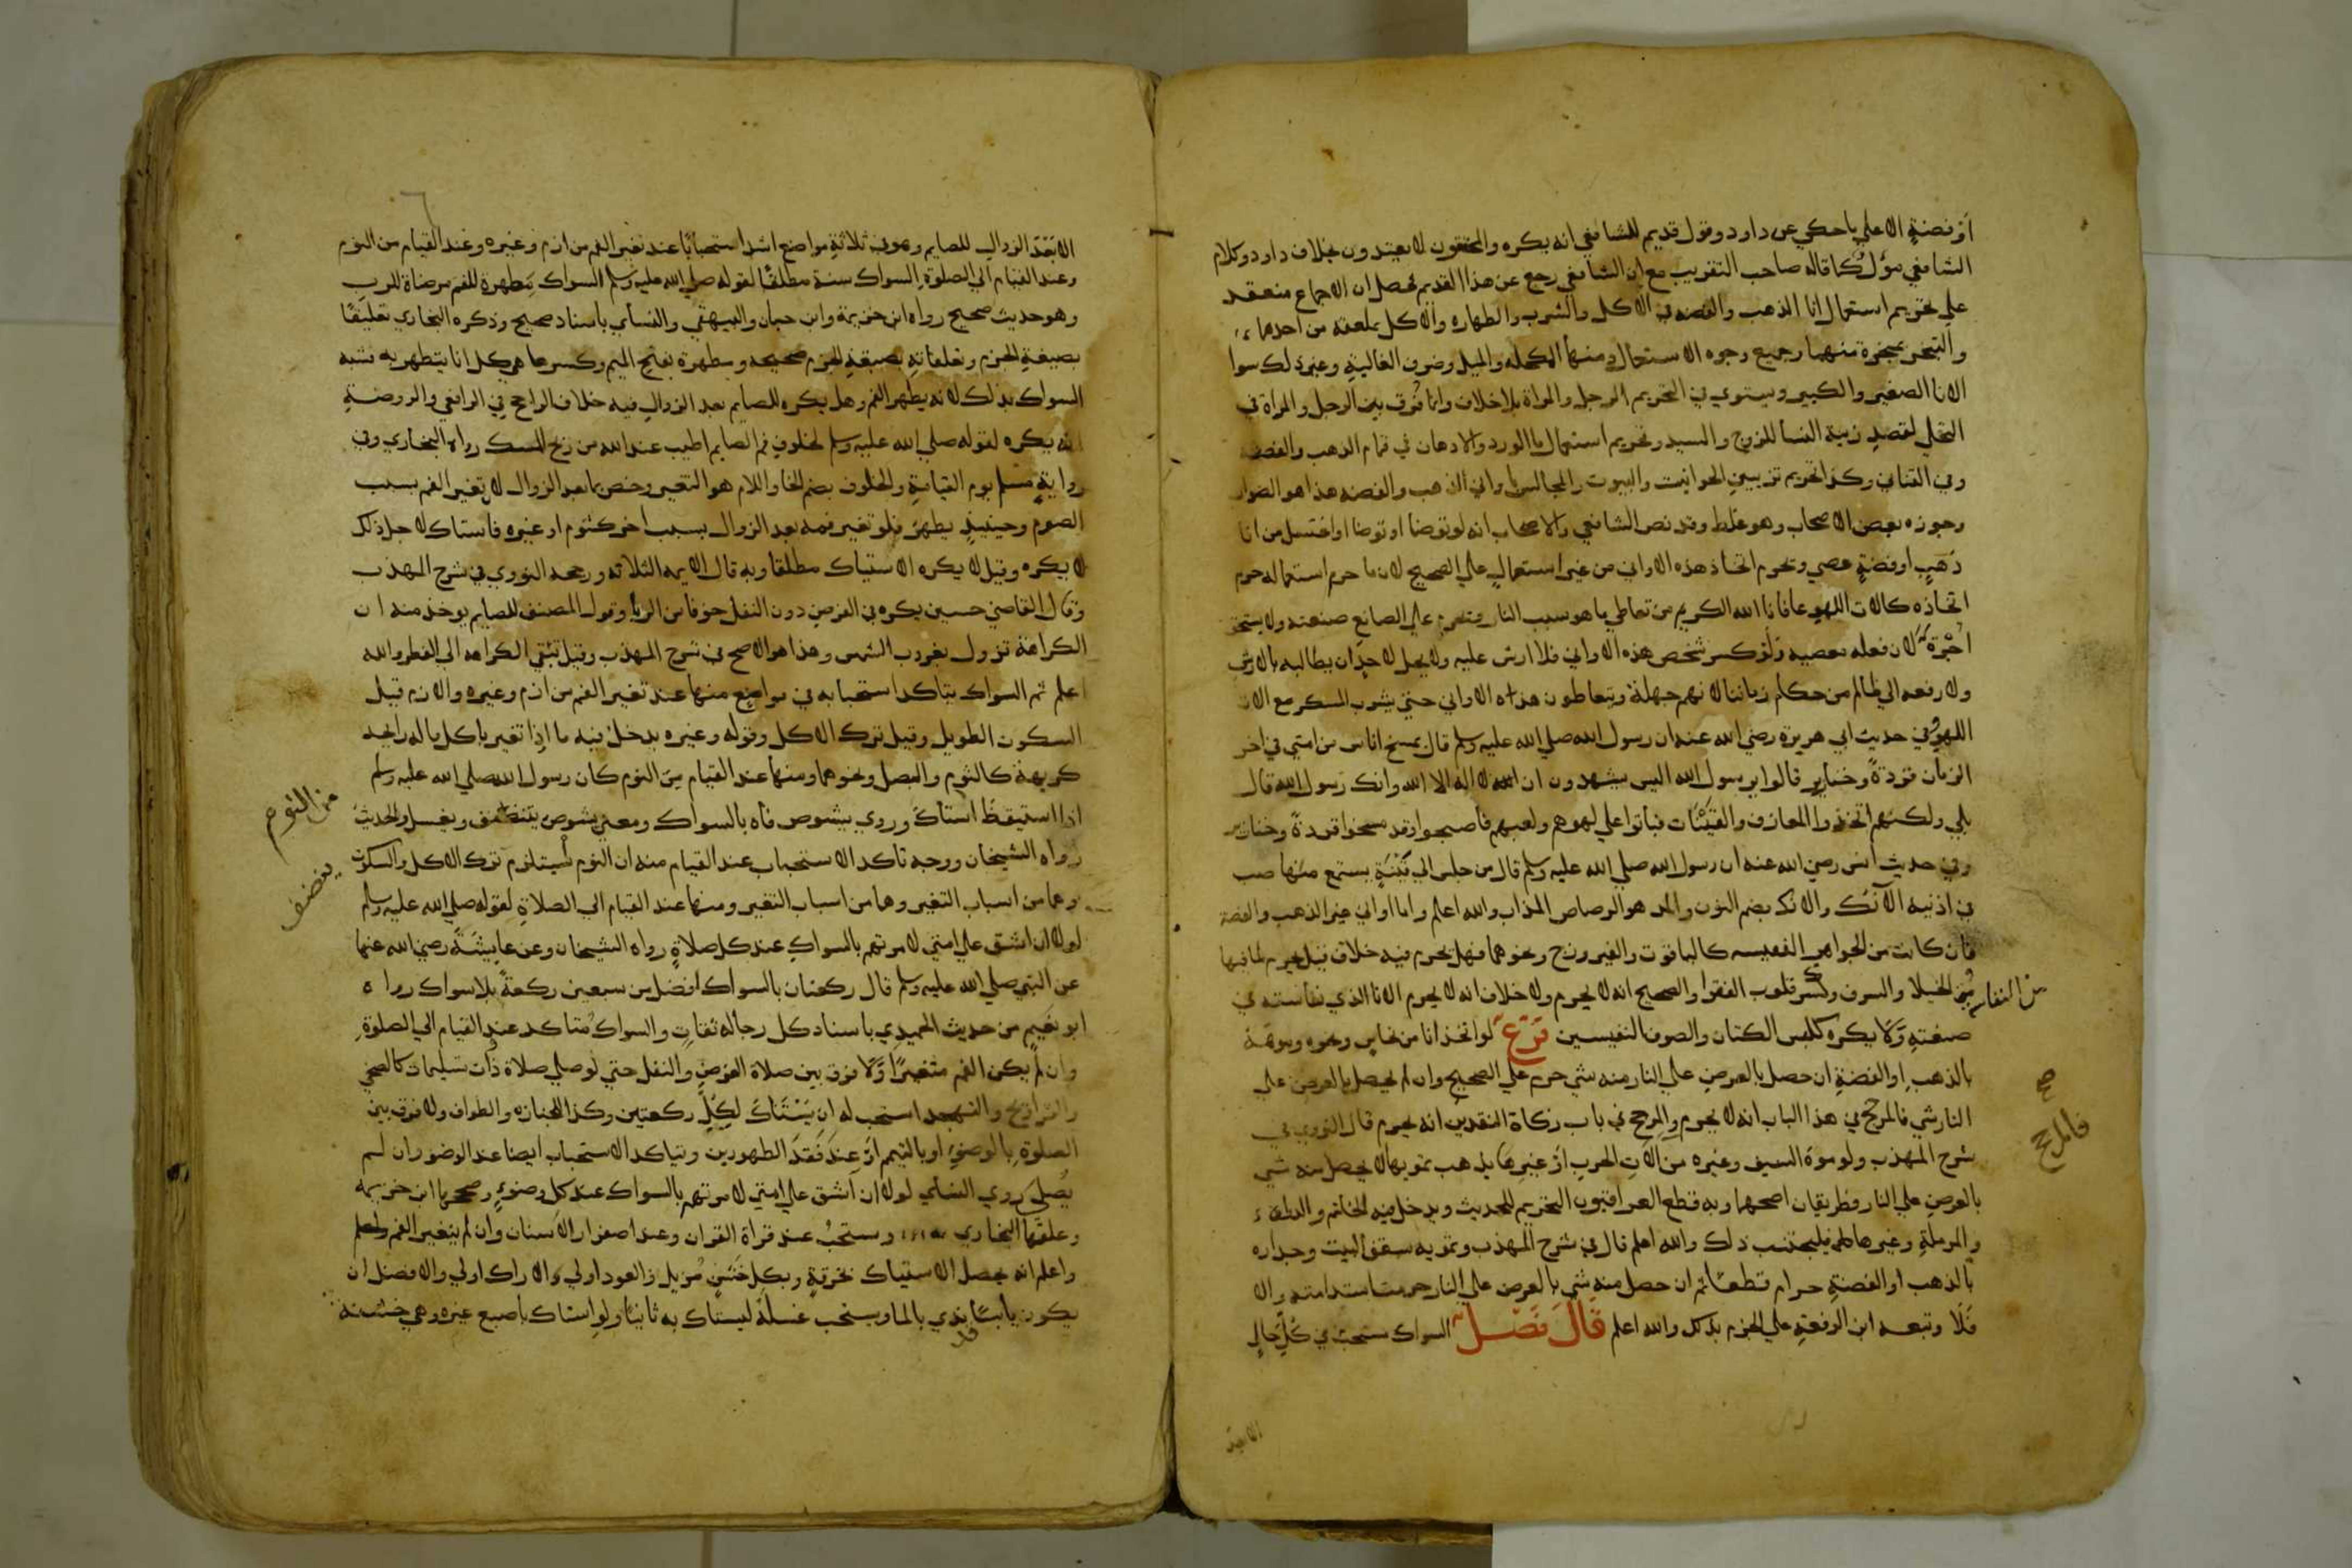 او فضة الا علي ما حكي عن داود وقول قديم للشافعي انه يكره والمحققون لا يعتدون بخلاف داود وكلام
الشافعي مؤل كما قاله صاحب التقريب مع ان الشافعي رجع عن هذا القديم فحصل ان الاجماع منعقد
علي تحريم استعمال انا الذهب والفضه في الاكل والشرب والطهاره والاكل بملعقه من احدهما
والتبخر بمبخرة منهما وجميع وجوه الاستعمال ومنها المكحله والميل وضروف الغالية وغير ذلك سوا
الانا الصغير والكبير ويستوي في التحريم الرجل والمراة بلا خلاف وانما فرق بين الرجل والمراة في
التحلي لقصد زينة النسا للزوج والسيد وتحريم استعمال ما الورد والادهان في قمام الذهب والفضه
وفي القناني وكذا تحريم تزيين الحوانيت والبيوت والمجالس باواني الذهب والفضه هذا هو الصواب
وجوزه بعض الاصحاب وهو غلط وقد نص الشافعي والاصحاب انه لو توضا او توضا او اغتسل من انا
ذهب او فضة عصي وتحرم اتخاذ هذه الاواني من غير استعمال علي الصحيح لان ما حرم استعماله حرم
اتخاذه كالات اللهو عافانا الله الكريم من تعاطي ما هو سبب النار ويحرم علي الصانع صنعته ولا يستحق
اجرة لان فعله معصيه ولو كسر شخص هذه الاواني فلا ارش عليه ولا يحل لاحد ان يطالبه بالارش
ولا رفعه الي ظالم من حكام زماننا لانهم جهلة ويتعاطون هذه الاواني حتي يشرب المسكر مع الات
اللهو وفي حديث ابي هريرة رضي الله عنه ان رسول الله صلي الله عليه وسلم قال يمسخ اناس من امتي في اخر
الزمان قردة وخنازير قالوا يرسول الله اليس يشهدون ان الله لا اله الا الله وانك رسول الله قال
بلي ولكنهم اتخذوا المعازف والقينات فباتوا علي لهوهم ولعبهم فاصبحوا وقد مسخوا قردة وخنازير
وفي حديث انس رضي الله عنه ان رسول الله صلي الله عليه وسلم قال من جلس الي قينة يستمع منها صب
في اذنيه الآنك والانك بضم النون والمد هو الرصاص المذاب والله اعلم واما اواني غير الذهب والفضة
فان كانت من الجواهر النفيسه كالياقوت والفيروزج ونحوهما فهل تحرم فيه خلاف قيل يحرم لما فيها
من الخيلا والسرف وكسر قلوب الفقرا والصحيح انه لا يحرم ولا خلاف انه لا يحرم الانا الذي نفاسته في
صنعته ولا يكره كلبس الكتان والصوف النفيسين فرع لو اتخذ انا من نحاس ونحوه وموهه
بالذهب او الفضة ان حصل بالعرض علي النار منه شي حرم علي الصحيح وان لم يحصل بالعرض علي
النار شي فالمرجح في هذا الباب انه لا يحرم والمرجح في باب زكاة النقدين انه يحرم قال النووي في
شرح المهذب ولو موه السيف وغيره من الات الحرب او غيرها بذهب تمويها لا يحصل منه شي
بالعرض علي النار فطريقان اصحهما وبه قطع العراقيون التحريم للحديث ويدخل فيه الخاتم والدواة
والمرملة وغيرها فليجتنب ذلك والله اعلم قال في شرح المهذب وتمويه سقف البيت وجداره
بالذهب او الفضة حرام قطعا ثم ان حصل منه شي بالعرض علي النار حرمت استدامته والا
فلا وتبعه ابن الرفعة علي الجزم بذلك والله اعلم قال فصل السواك مستحب في كل حال
صح
فالمرجح
الا بعد الزوال للصايم وهو في ثلاثة مواضع اشد استحبابا عند تغير الفم من ازم وغيره وعند القيام من النوم
وعند القيام الي الصلوة السواك سنة مطلقا لقوله صلي الله عليه وسلم السواك مطهرة للفم مرضاة للرب
وهو حديث صحيح رواه ابن خزيمة وابن حبان والبيهقي والنسأي باسناد صحيح وذكره البخاري تعليقا
بصيغة الجزم وتعليقاته بصيغة الجزم صحيحه ومطهرة بفتح الميم وكسرها هي كل انا يتطهر به فشبه
السواك بذلك لانه يطهر الفم وهل يكره للصايم بعد الزوال فيه خلاف الراجح في الرافعي والروضة
انه يكره لقوله صلي الله عليه وسلم لخلوف فم الصايم اطيب عند الله من ريح المسك رواه البخاري وفي
رواية مسلم يوم القيامة والخلوف بضم الخا واللام هو التغير وخص بما بعد الزوال لان تغير الفم بسبب
الصوم وحينيذ يظهر فلو تغير فمه بعد الزوال بسبب اخر كنوم او غيره فاستاك لاجل ذلك
لا يكره وقيل لا يكره الاستياك مطلقا وبه قال الايمه الثلاثه ورجحه النووي في شرح المهذب
وقال القاضي حسين يكره في الفرض دون النفل خوفا من الريا وقول المصنف للصايم يوخذ منه ان
الكراهة تزول بغروب الشمس وهذا هو الاصح في شرح المهذب وقيل تبقي الكراهه الي الفطر والله
اعلم ثم السواك يتاكد استحبابه في مواضع منها عند تغير الفم من ازم وغيره والازم قيل
السكوت الطويل وقيل ترك الاكل وقوله وغيره يدخل فيه ما اذا تغير باكل ما له رايحه
كريهة كالثوم والبصل ونحوهما ومنها عند القيام من النوم كان رسول الله صلي الله عليه وسلم
اذا استيقظ استاك وروي يشوص فاه بالسواك ومعني يشوص ينظف ويغسل والحديث
رواه الشيخان ووجه تاكد الاستحباب عند القيام منه ان النوم يستلزم ترك الاكل والسكوت
وهما من اسباب التغير وهما من اسباب التغير ومنها عند القيام الي الصلاة لقوله صلي الله عليه وسلم
لولا ان اشق علي امتي لامرتهم بالسواك عند كل صلاة رواه الشيخان وعن عايشة رضي الله عنها
عن النبي صلي الله عليه وسلم قال ركعتان بالسواك افضل من سبعين ركعة بلا سواك رواه
ابو نعيم من حديث الحميدي باسناد كل رجاله ثقات والسواك متاكد عند القيام الي الصلوة
وان لم يكن الفم متغيرا ولا فرق بين صلاة الفرض والنفل حتي لو صلي صلاة ذات تسليمات كالضحي
والتراويح والتهجد استحب له ان يستاك لكل ركعتين وكذا للجنازه والطواف ولا فرق بين
الصلوة بالوضوء او بالتيمم او عند فقد الطهورين ويتاكد الاستحباب ايضا عند الوضو وان لم
يصل روي النسأي لولا ان اشق علي امتي لامرتهم بالسواك عند كل وضوء وصححها ابن خزيمه
وعلقها البخاري ويستحب عند قراة القران وعند اصفرار الاسنان وان لم يتغير الفم
واعلم انه يحصل الاستياك بخرقة وبكل خشن مزيل والعود اولي والاراك اولي والافضل ان
يكون يابسا ندي بالما ويستحب غسله ليستاك به ثانيا ولو استاك باصبع غيره وهي خشنة
من النوم
قد